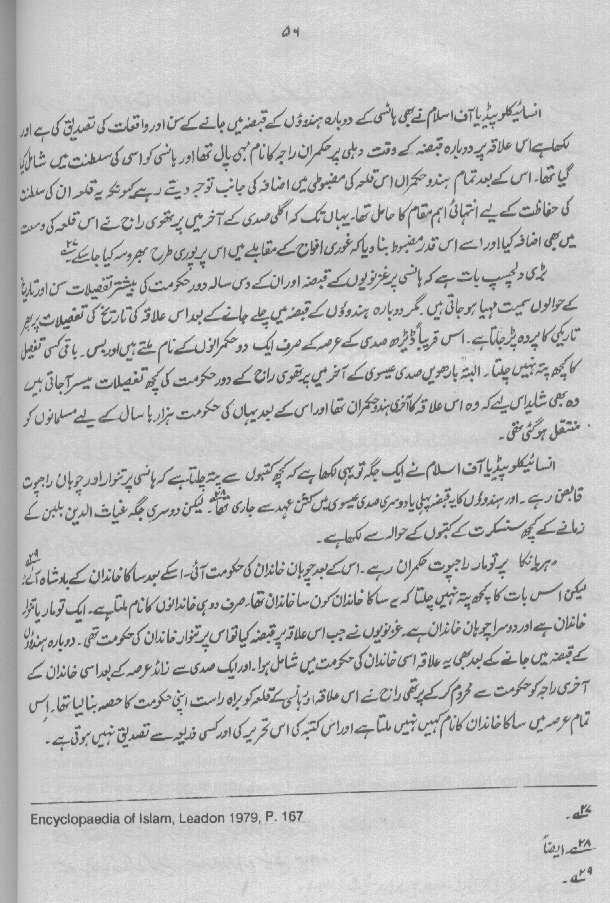 ۵۶
انسائیکلوپیڈیا آف اسلام نے بھی ہانسی کے دوبارہ ہندوؤں کے قبضہ میں جانے کے سن اور واقعات کی تصدیق کی ہے اور
لکھا ہے اس علاقہ پر دوبارہ قبضہ کے وقت دہلی پر حکمران راجہ کا نام مہی پال تھا اور ہانسی کو اسی کی سلطنت میں شامل کیا
گیا تھا۔ اس کے بعد تمام ہندو حکمراں اس قلعہ کی مضبوطی میں اضافہ کی جانب توجہ دیتے رہے کیونکہ یہ قلعہ ان کی سلطنت
کی حفاظت کے لیے انتہائی اہم مقام کا حامل تھا۔ یہاں تک کہ اگلی صدی کے آخر میں پرتھوی راج نے اس قلعہ کی وسعت
میں بھی اضافہ کیا اور اسے اس قدر مضبوط بنا دیا کہ غوری افواج کے مقابلے میں اس پر پوری طرح بھروسہ کیا جا سکے ۲۷
بڑی دلچسپ بات ہے کہ ہانسی پر غزنویوں کے قبضہ اور ان کے دس سالہ دور حکومت کی بیشتر تفصیلات سن اور تاریخ
کے حوالوں سمیت مہیا ہو جاتی ہیں۔ مگر دوبارہ ہندوؤں کے قبضہ میں چلے جانے کے بعد اس علاقہ کی تاریخ کی تفصیلات پر پھر
تاریکی کا پردہ پڑ جاتا ہے۔ اس قریباً ڈیڑھ صدی کے عرصہ کے صرف ایک دو حکمرانوں کے نام ملتے ہیں اور بس۔ باقی کسی تفصیل
کا کچھ پتہ نہیں چلتا۔ البتہ بارھویں صدی عیسوی کے آخر میں پرتھوی راج کے دور حکومت کی کچھ تفصیلات میسر آ جاتی ہیں
وہ بھی شاید اس لیے کہ وہ اس علاقہ کا آخری ہندو حکمران تھا اور اس کے بعد یہاں کی حکومت ہزار ہا سال کے لیے مسلمانوں کو
منتقل ہو گئی تھی۔
انسائیکلوپیڈیا آف اسلام نے ایک جگہ تو یہی لکھا ہے کہ کچھ کتبوں سے پتہ چلتا ہے کہ ہانسی پر تنوار اور چوہان راجپوت
قابض رہے۔ اور ہندوؤں کا یہ قبضہ پہلی یا دوسری صدی عیسوی میں کشن عہد سے جاری تھا۔ ۲۸ لیکن دوسری جگہ غیاث الدین بلبن کے
زمانے کے کچھ سنسکرت کے کتبوں کے حوالہ سے لکھا ہے۔
"ہریانکا پر تومار راجپوت حکمران رہے۔ اس کے بعد چوہان خاندان کی حکومت آئی۔ اسکے بعد ساکا خاندان کے بادشاہ آئے ۲۹
لیکن اس بات کا کچھ پتہ نہیں چلتا کہ یہ ساکا خاندان کون سا خاندان تھا۔ صرف دو ہی خاندانوں کا نام ملتا ہے۔ ایک تومار یا تنوار
خاندان ہے اور دوسرا چوہان خاندان ہے۔ غزنویوں نے جب اس علاقہ پر قبضہ کیا تو اس پر تنوار خاندان کی حکومت تھی۔ دوبارہ ہندوؤں
کے قبضہ میں جانے کے بعد بھی یہ علاقہ اسی خاندان کی حکومت میں شامل ہوا۔ اور ایک صدی سے زائد عرصہ کے بعد اسی خاندان کے
آخری راجہ کو حکومت سے محروم کر کے پرتھی راج نے اس علاقہ اور ہانسی کے قلعہ کو براہ راست اپنی حکومت کا حصہ بنا لیا تھا۔ اس
تمام عرصہ میں ساکا خاندان کا نام کہیں نہیں ملتا ہے اور اس کتبہ کی اس تحریر کی اور کسی ذریعہ سے تصدیق نہیں ہوتی ہے۔
۲۷۔ Encyclopaedia of Islam, Leadon 1979, P. 167
۲۸۔ ایضاً
۲۹۔